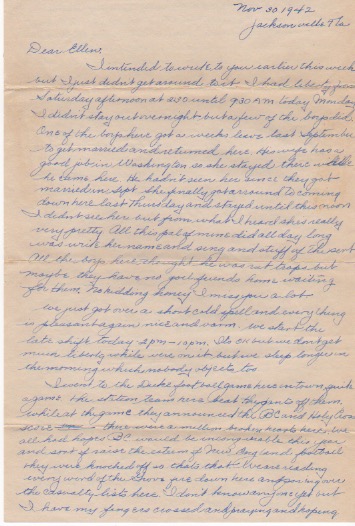 Nov 30 1942
Jacksonville, Fla
Dear Ellen:
I intended to write to you earlier this week
but I just didn't get around to it. I had liberty from
Saturday afternoon at until 930 AM today Monday
I didn't stay out overnight but a few of the boys did.
One of the boys here got a weeks leave last September
to get married and returned here. His wife has a
good job in Washington so she stayed there while
he came here. He hadn't seen her since they got
married in Sept. She finally got around to coming
down here last Thursday and stayed until this noon
I didn't see her but from what I heard she's really
very pretty All this pal of mine did all day long
was write her name and sing and stuff of the sort
All the boys here thought he was but
maybe they have no girl friends home waiting
for them. No kidding honey I miss you a lot
We just got over a short cold spell and everything
is pleasant again nice and warm. We start the
late shift today 2pm-10pm. Its OK but we don't get
much liberty while were on it but we sleep longer in
the morning which nobody objects to
I went to the Duke football game here in town
against the station team here
while at the game they announced the BC and Holy Cross
score there were a million broken hearts here, we
all had hopes BC would be this year
and sort of raise the of New England football
they were knocked off so that's that We are reading
every word of the down here and
the casualty lists here I don't know anyone yet but
I have my fingers crossed and praying and hoping